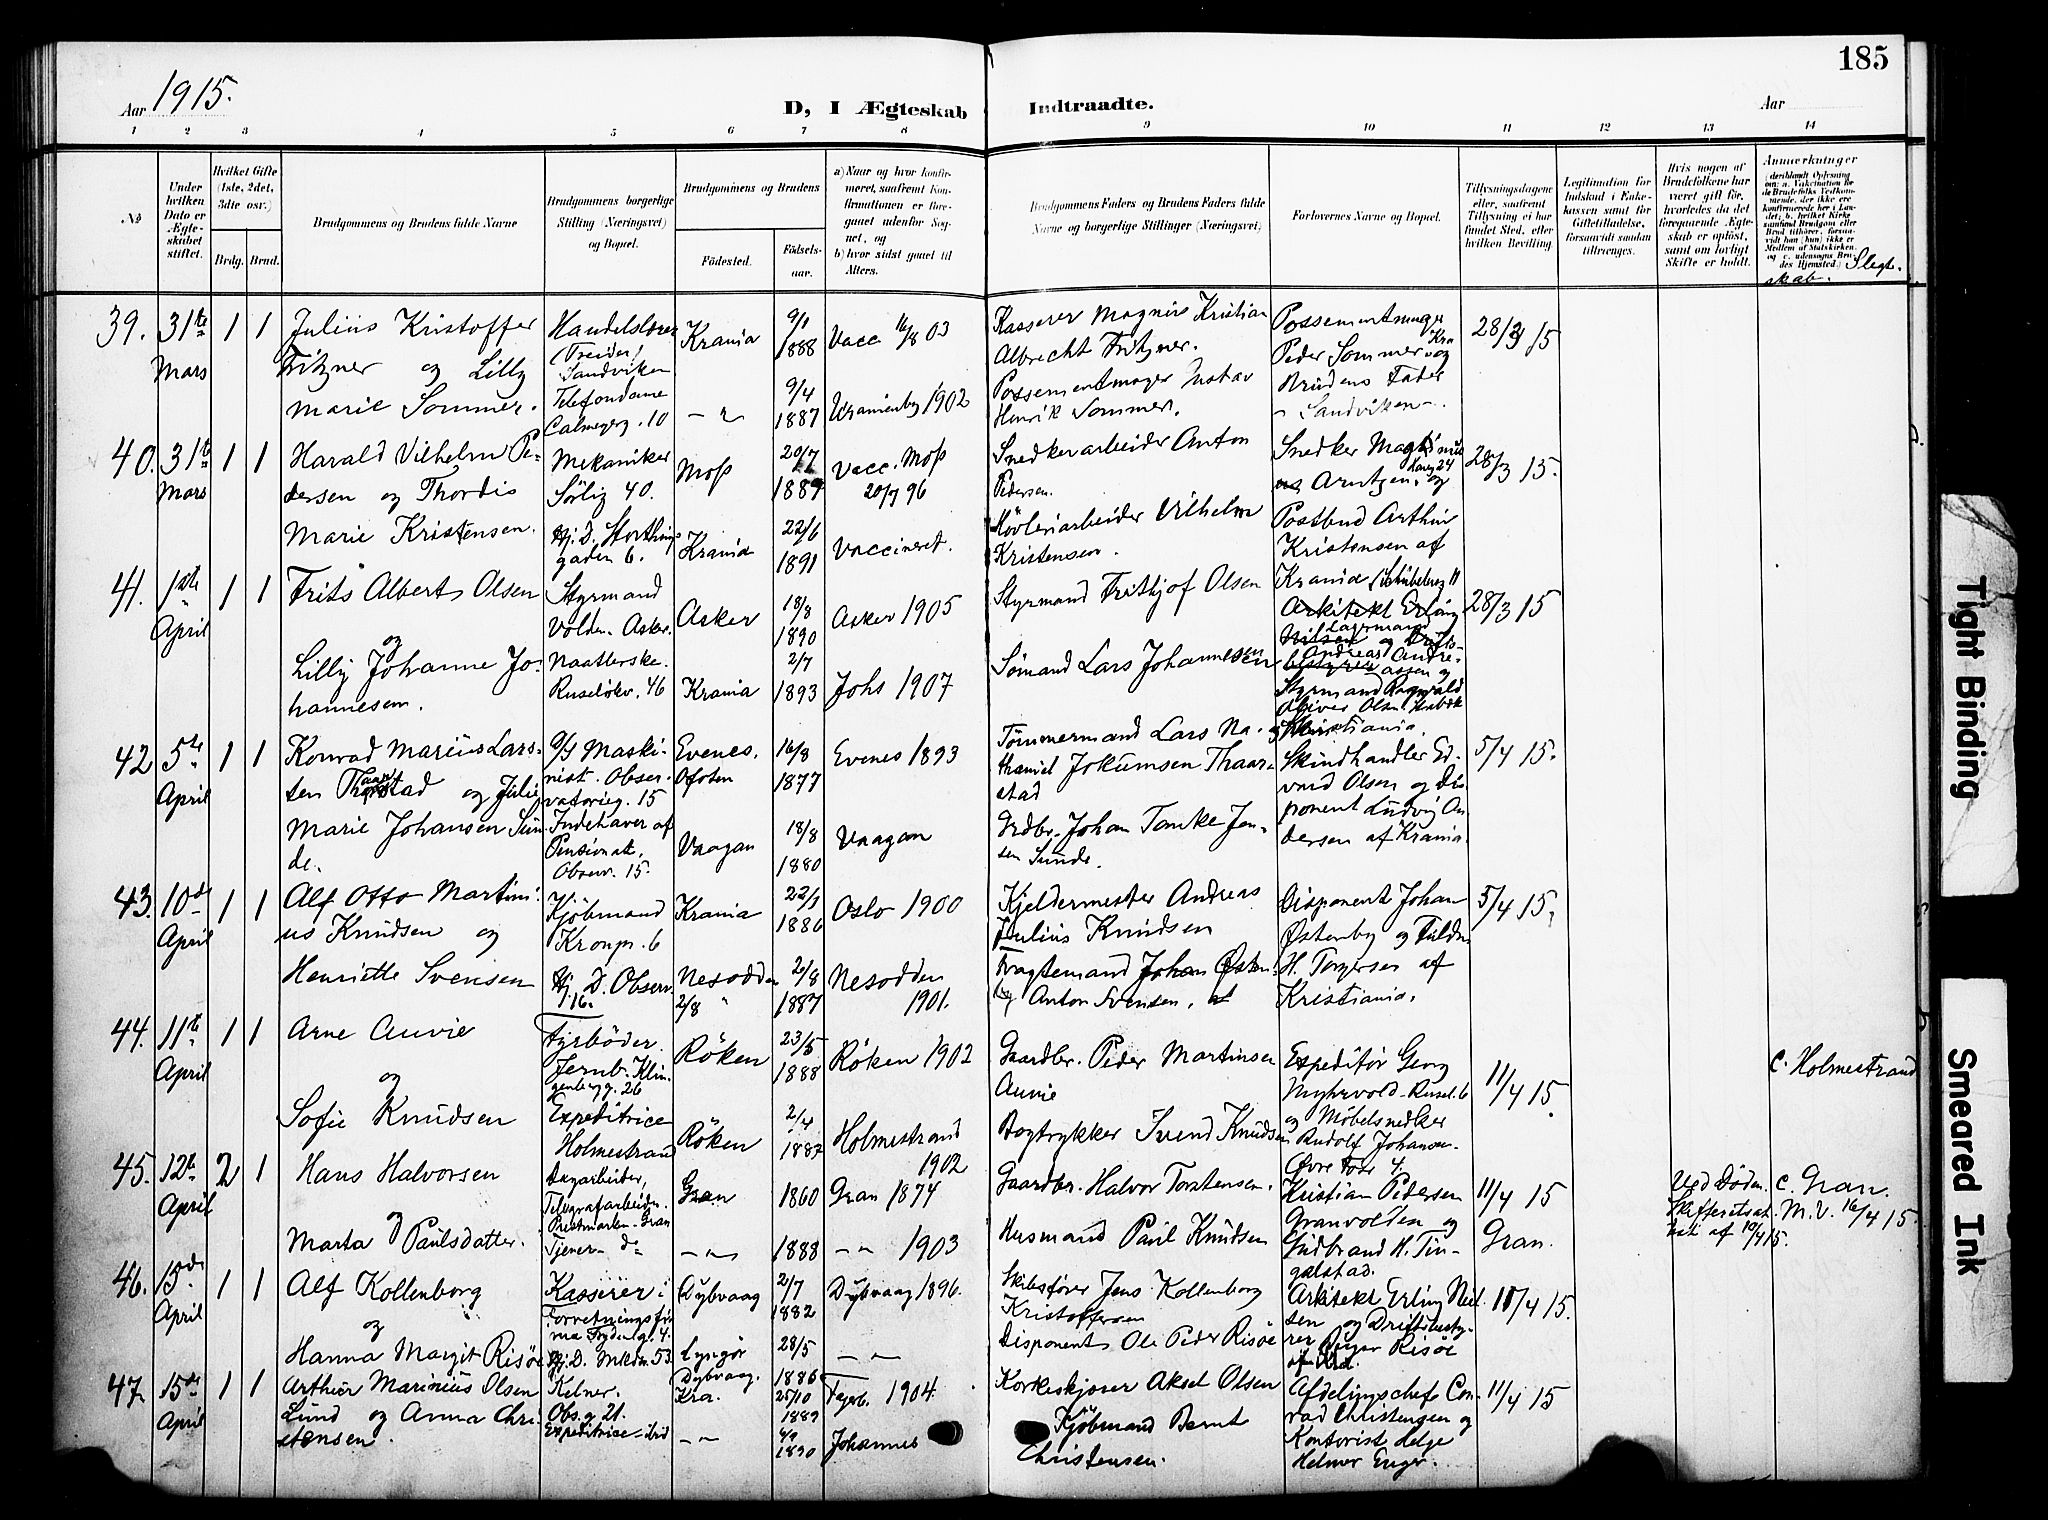 185
Aar 1915.
D, I Ægteskab Indtraadte.
Aar
1 2 3 4 5 6 7 8 9 10 11 12 13 14
No
Under hvilken Dato er Ægteskabet stiftet.
Hvilket Gifte (1ste, 2det, 3dte osv.)
Brdg. Brud.
Brudgommens og Brudens fulde Navne
Brudgommens borgerlige Stilling (Næringsvei) og Bopæl.
Brudgommens og Brudens
Födested.
Födselsaar.
a) Naar og hvor konfirmeret, saafremt Konfirmationen er foregaaet udenfor Sognet, og
b) hvor sidst gaaet til Alters.
Brudgommens Faders og Brudens Faders fulde Navne og borgerlige Stillinger (Næringsvei)
Forlovernes Navne og Bopæl.
Tillysningsdagene eller, saafremt Tillysning ei har fundet Sted, efter hvilken Bevilling.
Legitimation for Indskud i Enkekassen samt for Giftetilladelse, forsaavidt saadan tiltrænges.
Hvis nogen af Brudefolkene har været gift før, hvorledes da det foregaaende Ægteskab er opløst, samt om lovligt Skifte er holdt.
Anmerkninger
Slegtskab.
39. 31te Mars 1 1
Julius Kristoffer
Fritzner og Lilly
Marie Sommer.
Handelslærer
Sandviken
Telefondame
Calmeyerg. 10
Krania
9/1 1888
9/4 1887
Vacc 16/8 03
Uranienby 1902
Kasserer Magnus Kristian
Albrecht Fritzner.
Possementmager Gustav
Henrik Sommer.
Possementmager
Peder Sommer Kra og
Brudens Fader
- Sandviken -.
28/3 15
40. 31te Mars 1 1
Harald Vilhelm Pe-
dersen og Thordis
Marie Kristensen.
Mekaniker
Sölig 40.
Hj. D. Storthings
gaden 6.
Moss
Krania
20/7 1889
22/6 1891
Vacc. Moss
20/9 96
Vaccineret.
Snedkerarbeider Anton
Pedersen.
Høvleriarbeider Vilhelm
Kristensen.
Snedker Magnus
Arntzen og
Postbud Arthur
Kristensen af
Krania
28/3 15.
41. 1ste April 1 1
Frits Alberts Olsen
og
Lilly Johanne Jo-
hannesen.
Styrmand
Volden. Asker.
Naatlerske.
Ruselökv. 46
Asker
Krania
18/8 1890
2/7 1893
Asker 1905
Johs 1907
Styrmand Frithjof Olsen
Sömand Lars Johannesen
Arkitekt Erling
Nilsen og Drifts-
bestyrer
Andreas Andre-
assen og
Styrmand Ragnvald
Kristiania.
28/3 15
42 5te April 1 1
Konrad Marius Lars-
sen Thaarstad og Julie
Marie Johansen Sun-
de.
Maski-
nist. Obser-
vatorieg. 15
Indehaver af
Pensionat,
Observ. 15.
Evenes.
Ofoten
Vaagan
16/8 1877
18/8 1880
Evenes 1893
Vaagan
Tömmermand Lars Na-
thaniel Jokumsen Thaar-
stad
Grdbr. Johan Tanke Jen-
sen Sunde.
Skindhandler Ed-
vard Olsen og Dis-
ponent Ludvig An
dersen af Krania.
5/4 15.
43. 10de April 1 1
Alf Otto Martini-
us Knudsen og
Henriette Svensen
Kjöbmand
Kronpr. 6
Hj. D. Observ.
16.
Krania
Nesodden
2/8 "
22/1 1886
2/8 1887
Oslo 1900
Nesodden
1901.
Kjeldermester Andreas
Julius Knudsen
Fragtemand Johan Østen-
by Anton Svensen.
Disponent Johan
Østenby og Fuldm.
H. Torgersen af
Kristiania.
5/4 15.
44. 11te April 1 1
Arne Auvie
og
Sofie Knudsen
Fyrböder.
Jernb. Klin-
genbergg. 26
Expeditrice
Holmestrand
Röken
Röken
23/5 1888
2/4 1887
Röken 1902
Holmestrand
1902
Gaardbr. Peder Martinsen
Auvie
Bogtrykker Svend Knudsen
Expeditör Georg
Myhrvold. Rusel. 6
og Möbelsnedker
Rudolf Johansen.
Øvre Foss 4.
11/4 15.
C. Holmestrand
45. 12te April 2 1
Hans Halvorsen
og
Marta Paulsdatter.
Dagarbeider,
Telegrafarbeider.
Prestmarken. Gran
Tjener- do
Gran
1860
1888
Gran 1874
1903
Gaardbr. Halvor Torstensen.
Husmand Paul Knudsen
Kristian Pedersen
Granvolden og
Gudbrand H. Tin-
gelstad.
11/4 15
Gran.
Ved Döden.
Skifteretsat-
test af 10/4 15.
C. Gran.
M.V. 16/4 15.
46. 15de April 1 1
Alf Kollenborg
og
Hanna Margit Risöe
Kasserer i
Forretningsfir
ma Frydenlg. 4.
Hj. D. Mkdm. 53.
Dybvaag
Lyngör
Dybvaag.
2/7 1882
28/5 1886
Dybvaag 1896.
Skibsförer Jens Kollenborg
Kristoffersen
Disponent Ole Peder Risöe
Arkitekt Erling Niel-
sen og Driftsbesty-
rer Birger Risöe
af Kra.
11/4 15.
47. 15de April 1 1
Arthur Marinius Olsen
Lund og Anna Chri-
stensen.
Kelner.
Obs.g 21.
Expeditrice - ibid
Kra.
25/10 1889
1890
Fagerb. 1904.
Johannes
Korkeskjærer Aksel Olsen
Kjöbmand Bernt
Christensen.
Afdelingschef Con-
rad Christensen og
Kontorist Helge
Helmer Enger.
11/4 15
Tight Binding
Smeared Ink